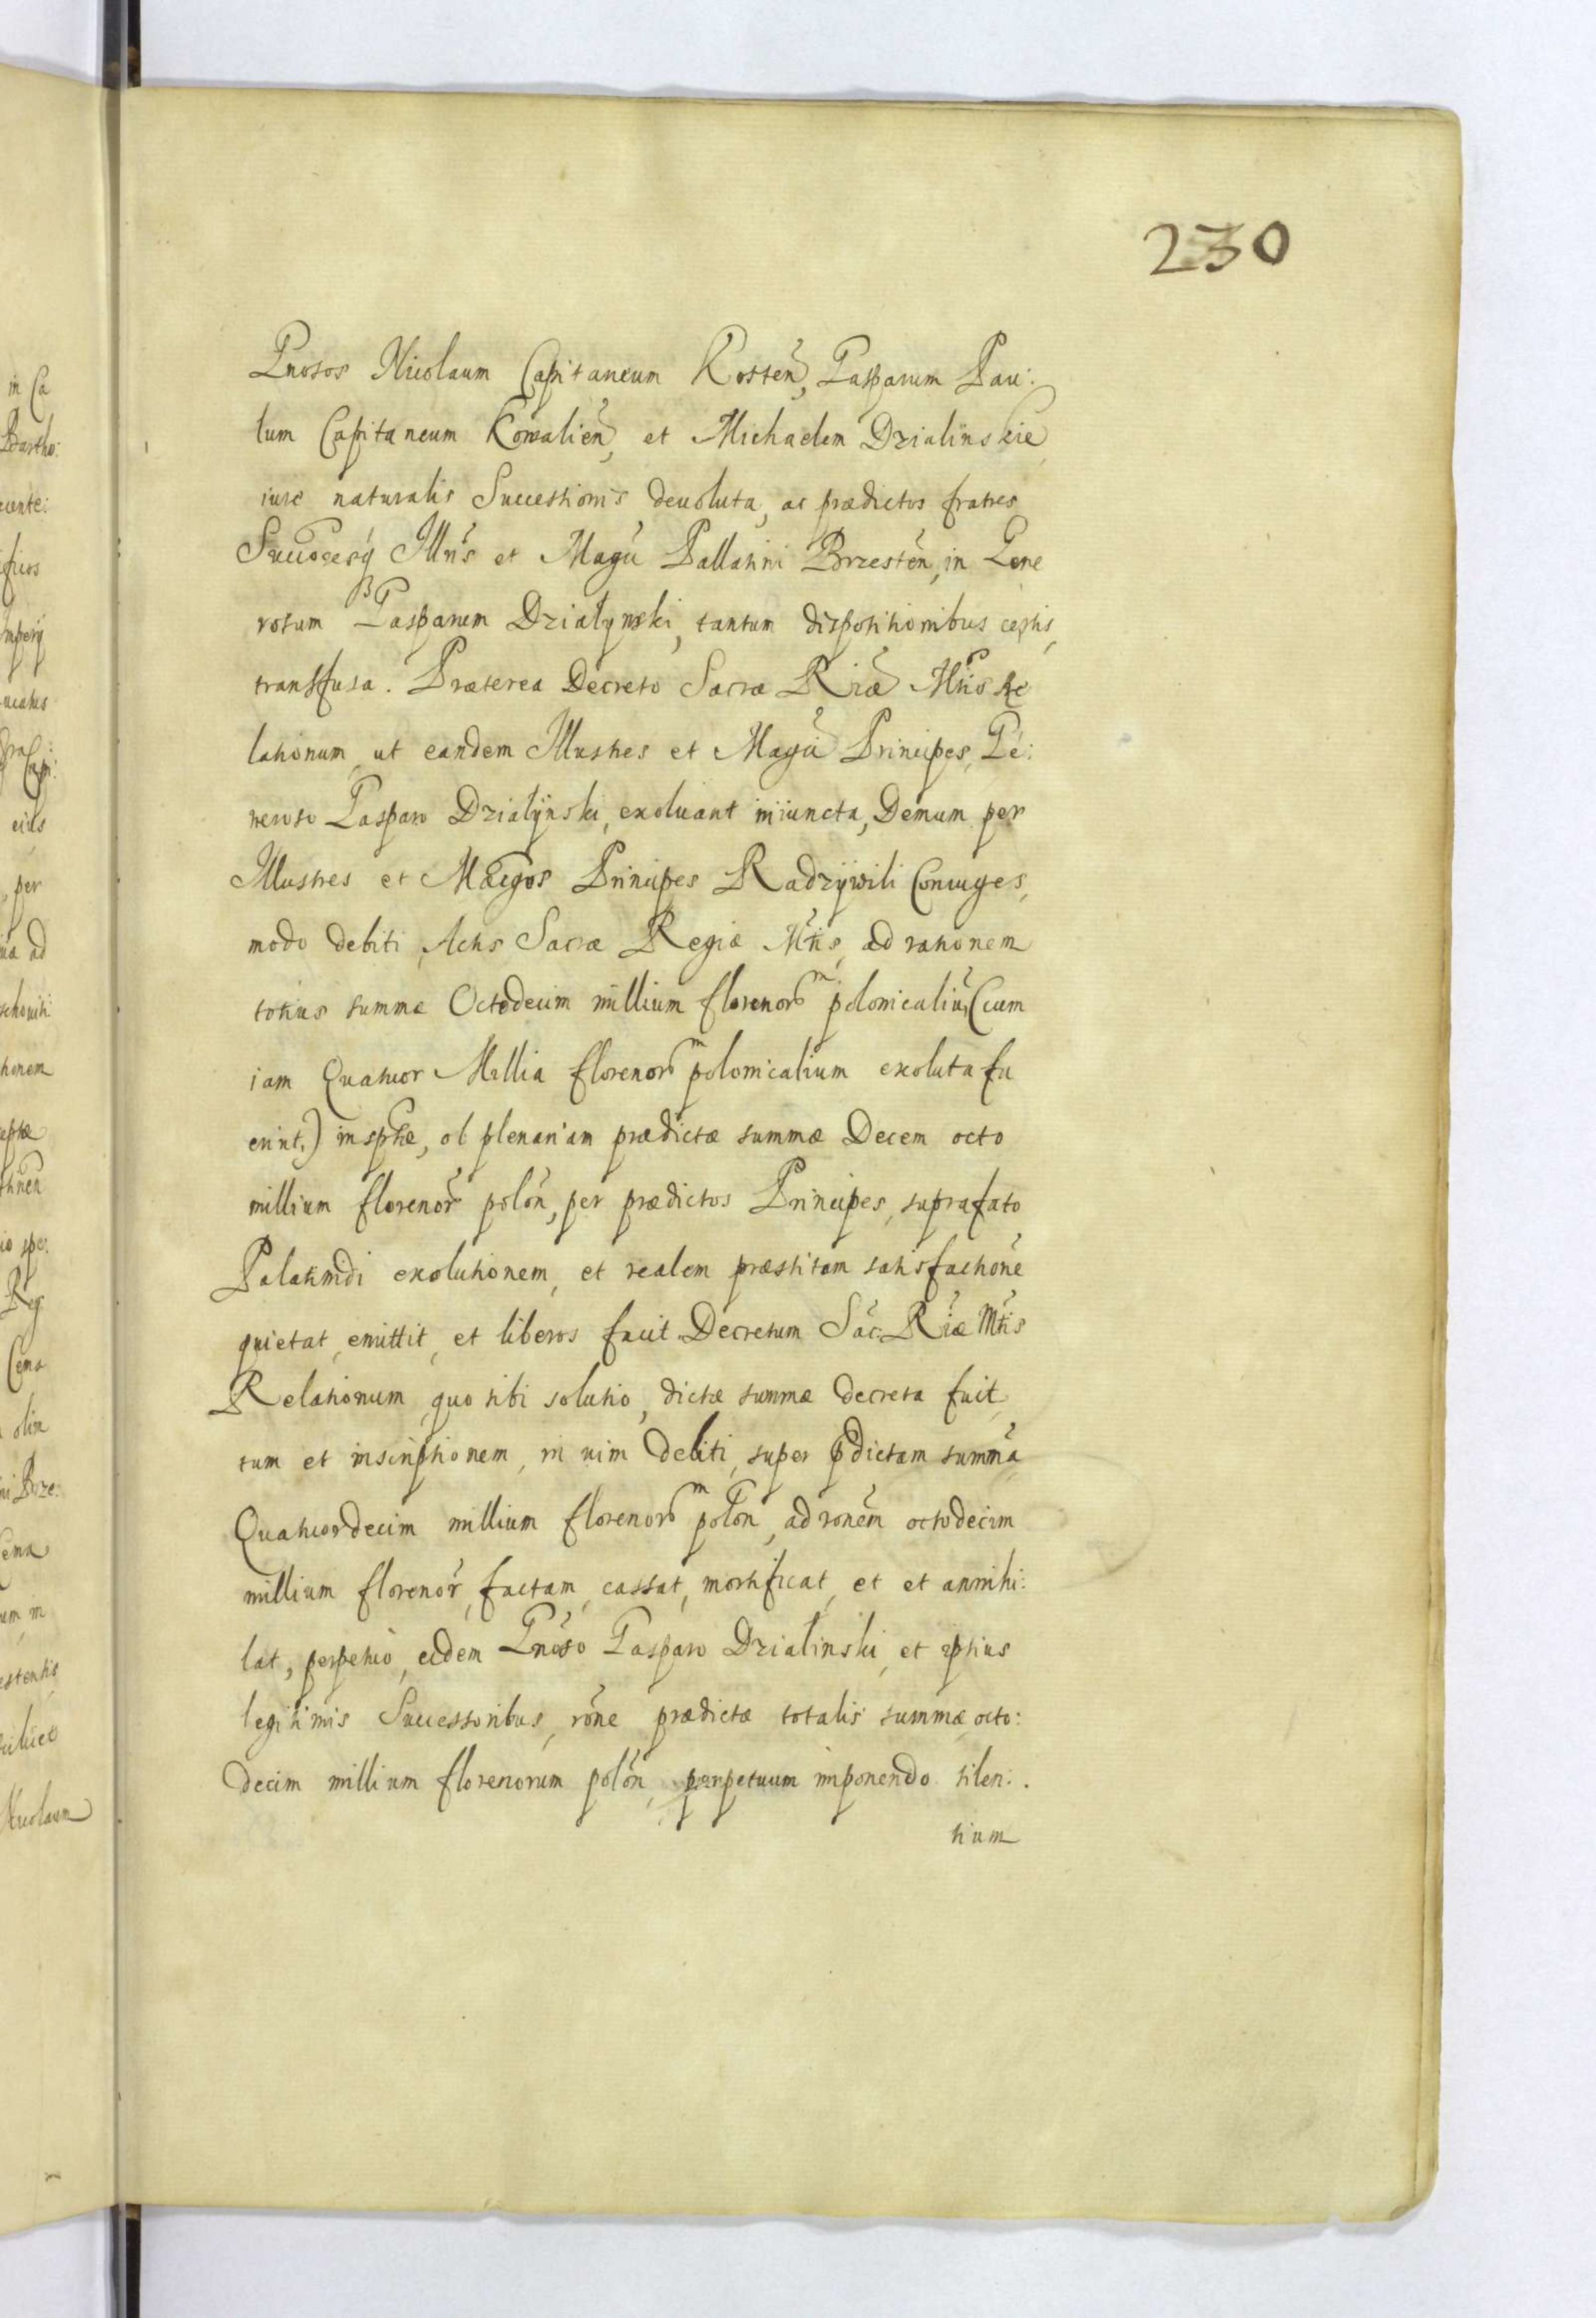 230
Gnosos Nicolaum Capitaneum Kosten, Gasparum Pau:
lum Capitaneum Kowalien, et Michaelem Dzialinskie
iure naturalis Successionis devoluta, ac prædictos fratres
Illris et Magci Pallatini Brzesten, in Gene
rosum Gasparem Dzialynski, tantum dispositionibus certis,
transfusa. Præterea Decreto Sacræ Riæ Mtis Re
lationum, ut eandem Illustres et Magci Principes, Ge:
neroso Gasparo Dzialÿnski, exolvant iniuncta, Demum per
Illustres et Magcos Principes Radzÿwili Coniuges,
modo debiti, Actis Sacræ Regiæ Mtis, ad rationem
totius summæ Octodecim millium florenorum polonicaliu, (cum
iam Quatuor Millia florenorum polonicalium exoluta fu
erint.) inscptæ, ob plenariam prædictæ summæ Decem octo
millium florenor polon, per prædictos Principes, suprafato
Palatinidi exolutionem, et realem præstitam satisfactione
quietat, emittit, et liberos facit. Decretum Sac: Riæ Mtis
Relationum, quo sibi solutio, dictæ summæ decreta fuit,
tum et inscriptionem, in vim debiti, super pdictam summa
Quatuordecim millium florenorum polon, ad ronem octodecim
millium florenor, factam, cassat, mortificat, et et annihi:
lat, perpetuo, eidem Gnoso Gasparo Dzialinski, et ipsius
legitimis Successoribus, rone prædictæ totalis summæ octo:
decim millium florenorum polon, perpetuum imponendo silen:
tium